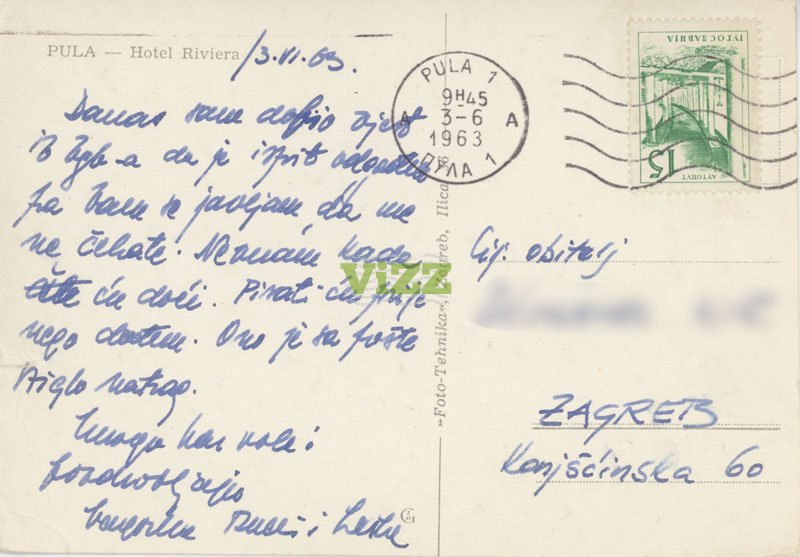 PULA — Hotel Riviera
/3.VI.63.
Danas sam dobio vjest
iz Zgb-a da je ispit odgođen
pa Vam se javljam da me
ne čekate. Neznam kada
ću doći. Pisati ću prije
nego dođem. Ono je sa pošte
stiglo natrag.
Mnogo Vas vole i
pozdravljaju
i
PULA 1
9H45
3-6
1963
A A
ПУЛА 1
ЈУГОСЛАВИЈА
15
АУТОПУТ
»Foto-Tehnika«, Zagreb, Ilica
ViZZ
Cij. obitelj
ZAGREB
Konjšćinska 60